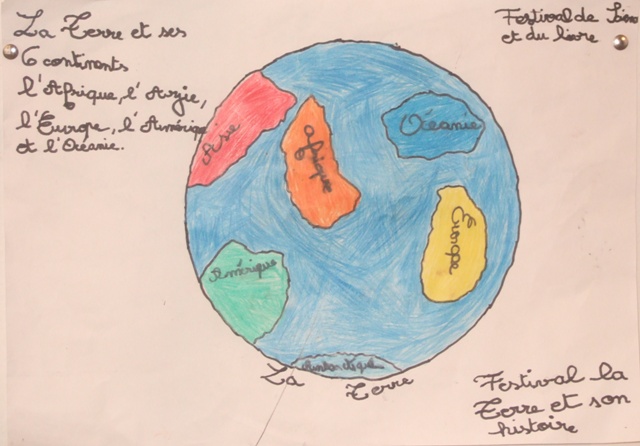 La Terre et ses
6 continents
l'Afrique, l'Asie,
l'Europe, l'Amérique
et l'Océanie.
Festival de
et du livre
Asie
afrique
Océanie
Europe
Amérique
Antarctique
La Terre
Festival la
Terre et son
histoire